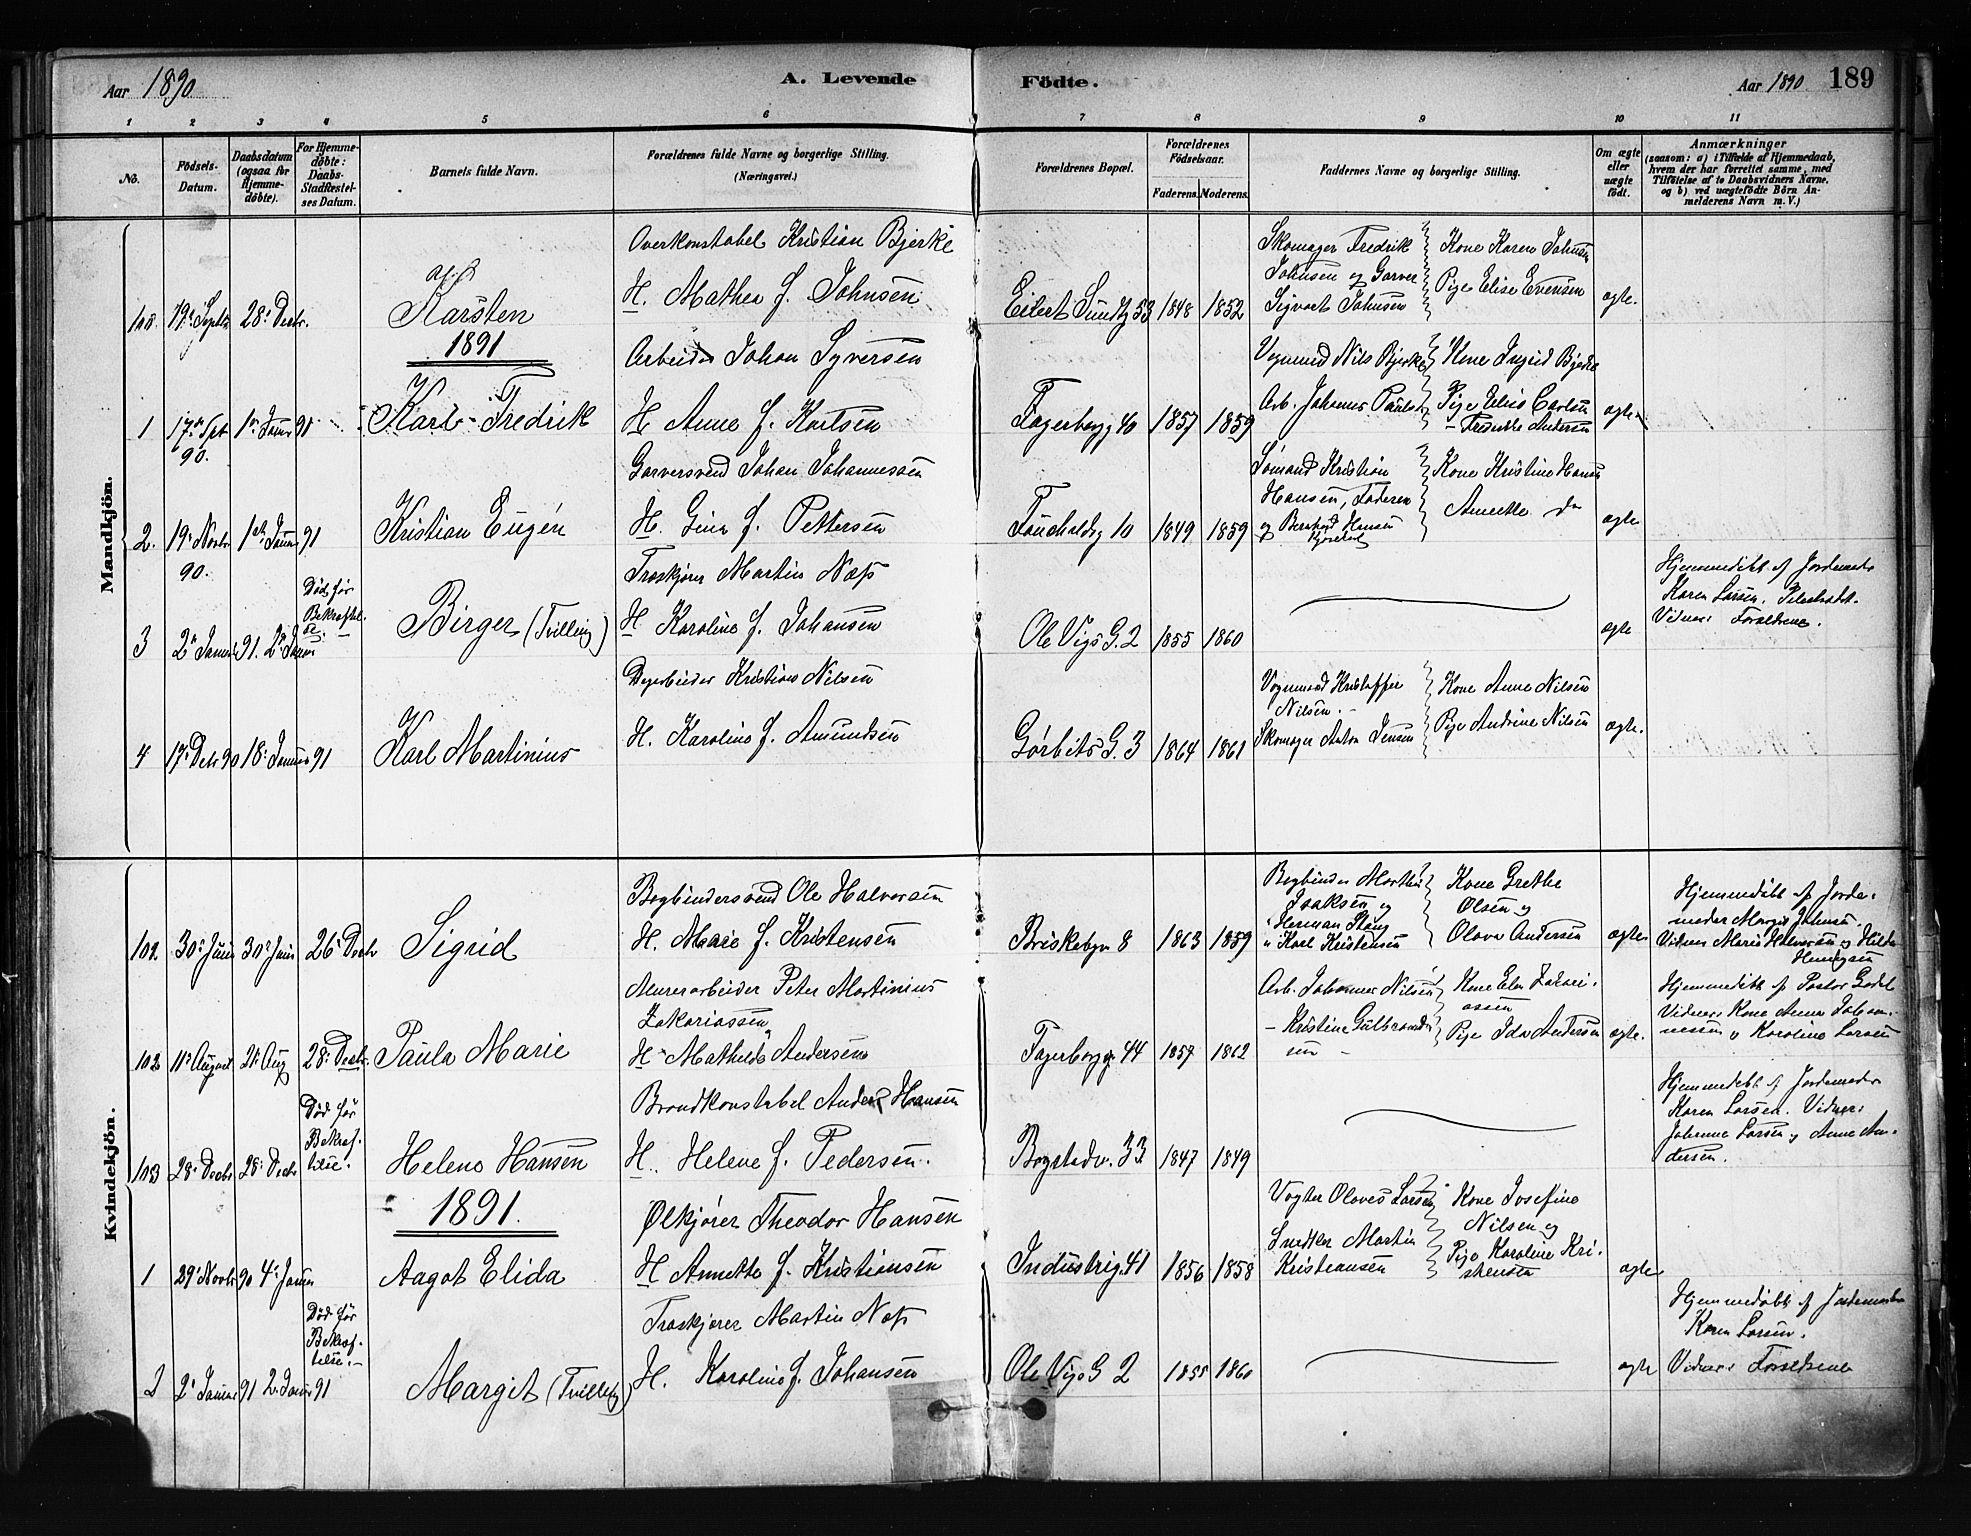 Aar 1890
A. Levende
Födte.
Aar 1890
189
1 2 3 4 5 6 7 8 9 10 11
No.
Födsels-Datum.
Daabsdatum (ogsaa for Hjemme-döbte).
For Hjemme-döbte: Daabs-Stadfæstel-ses Datum.
Barnets fulde Navn.
Forældrenes fulde Navne og borgerlige Stilling.
(Næringsvei.)
Forældrenes Bopæl.
Forældrenes Födselsaar.
Faderens. Moderens.
Faddernes Navne og borgerlige Stilling.
Om ægte eller uægte födt.
Anmærkninger
(saasom: a) i Tilfælde af Hjemmedaab, hvem der har forrettet samme, med Tilföielse af to Daabsvidners Navne, og b) ved uægtefödte Börn Anmelderens Navn m. V.)
Mandkjön.
Overkonstabel Kristian Bjerke
H. Mathea f. Johnsen
19' Septbr 28' Decbr.
Karsten
Eilert Sundtg 53 1848 1852
Skomager Fredrik
Johnsen og Garver
Sigvart Johnsen
Kone Karen Johnsen
Pige Elise Evensen
ægte.
1891
Arbeider Johan Syversen
1 17' Spt 90. 1' Janr 91
Karl Fredrik
H Anne f. Karlsen
Fagerborgg 40 1857 1859
Vognmand Nils Bjerke
Arb. Johannes Paulsen
Kone Ingrid Bjerke
Pige Elise Carlsen
– Fredrikke Andersen
ægte
Garversvend Johan Johannessen
2. 19' Novbr 90. 1' Janr 91
Kristian Eugén
H. Gina f. Pettersen
10 1849 1859
Sømand Kristian
Hansen, Faderen
og Bernhard Hansen
Kone Kristine Hansen
Annette do
ægte
Træskjører Martin Næss
3 2' Januar 91. 2' Januar
Død før Bekræftel-se.
Birger (Tvilling)
H Karoline f. Johansen
Ole Vigs G. 2 1855 1860
ægte
Hjemmedøbt af Jordemoder
Karen Larsen, Pilestrædet.
Vidner: Forældrene.
Kristian Nilsen
4 17' Dcbr 90 18' Januar 91
Karl Martinius
H. Karoline f. Amundsen
Gørbitz G. 3 1864 1861
Vognmand Kristoffer
Nilsen.
Skomager Anton Jensen
Kone Anne Nilsen
Pige Andrine Nilsen
ægte.
Kvindekjön.
Bogbindersvend Ole Halvorsen
30' Juni 30' Juni 26' Decbr
Sigrid
H. Marie f. Kristensen
Briskebyv 8 1863 1859
Bogbinder Marthin
Isaksen og
" Herman Stang
" Karl Kristensen
Kone Grethe
Olsen og
Olava Andersen
ægte
Hjemmedøbt af Jorde-
moder Margit Johnsen.
Vidner Marie Halvorsen og Hilda
Murerarbeider Peter Martinius
Zakariassen
102 11' August 21' Aug 28' Decbr.
Paula Marie
H Mathilda Andersen
Fagerborgg. 44 1857 1862
Arb. Johannes Nilsen
– Kristine Gulbrand-
sen –
Kone Elen Zakari-
assen
Pige Ida Andersen
ægte.
Hjemmedøbt af Pastor
Vidner: Kone Anna Johan-
nessen og Karoline Larsen
Brandkonstabel Anders Hansen
103 28' Decbr 28' Decbr
Død før Bekræf-telse.
Helene Hansen
H. Helene f. Pedersen.
Bogstadv. 33 1847 1849
Hjemmedøbt af Jordemoder
Karen Larsen. Vidner:
Johanne Larsen og Anne An-
dersen.
1891.
Ølkjører Theodor Hansen
1 29' Novbr 90 4' Janr
Aagot Elida
H Annette f. Kristiansen
Industrig. 41 1856 1858
Vogter Olaves Larsen
Snedker Martin
Kristiansen
Kone Josefine
Nilsen og
Pige Karoline Kri-
stensen
ægte
Træskjører Martin Næss
2 2' Januar 91 2' Januar 91
Død før Bekræf-telse.
Margit (Tvilling)
H. Karoline f. Johansen
Ole Vigs G 2 1855 1860
ægte
Hjemmedøbt af Jordemoder
Karen Larsen.
Vidner: Forældrene